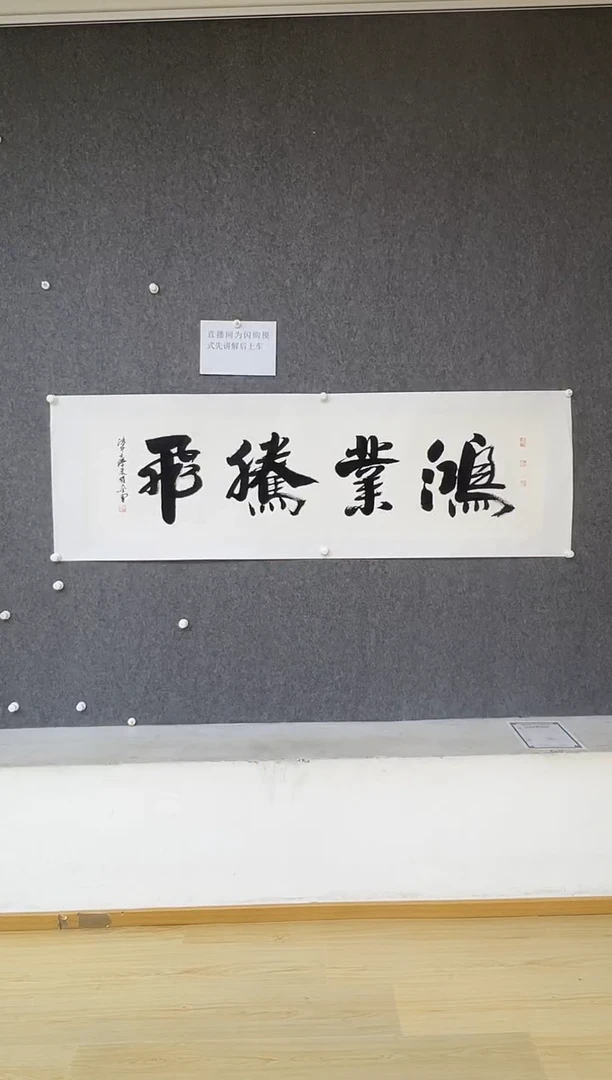 直播间为闪购模
式先讲解后上车
鸿業騰飛